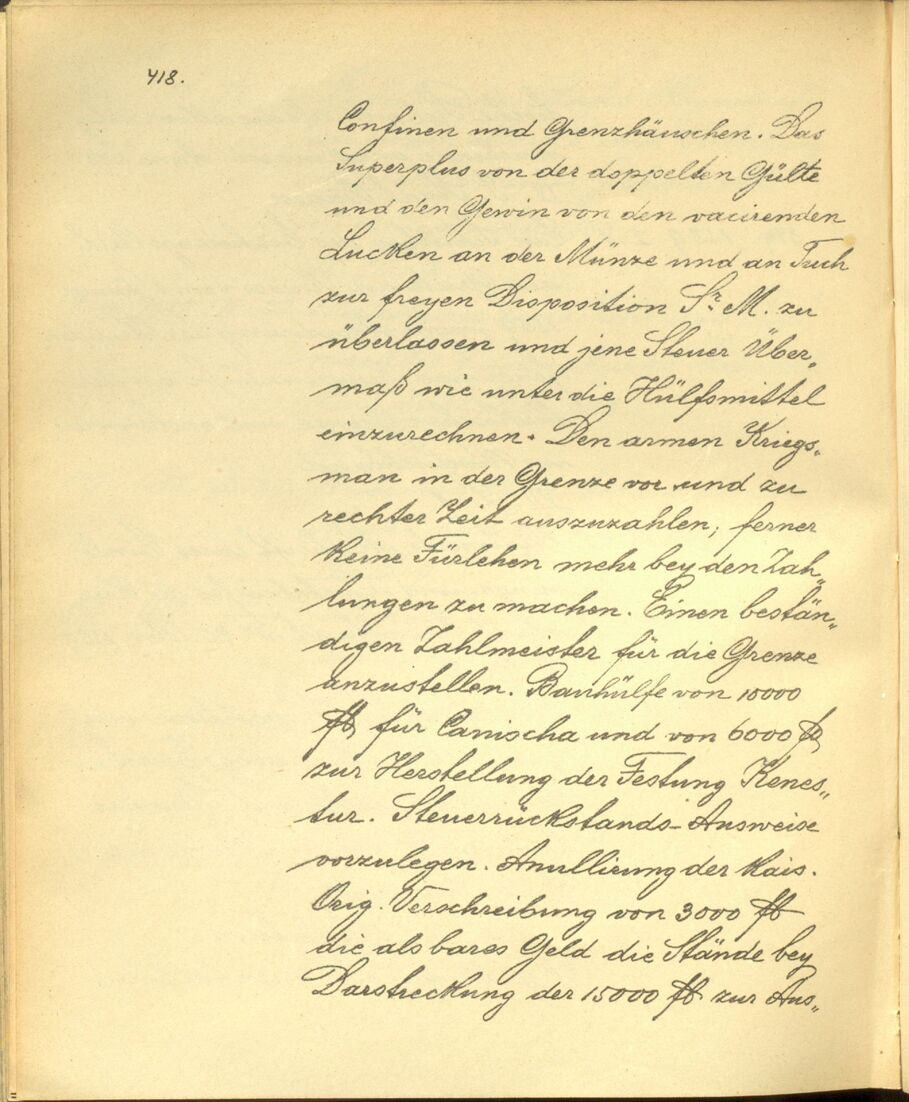 418.
Confinen und Grenzhäuschen. Das
Superplus von der doppelten Gülte
und den Gewin von den vacirenden
Lucken an der Münze und an Tuch
zur freyen Disposition Sr. M. zu
überlassen und jene Steuer Über„
maß wie unter die Hülfsmittel
einzurechnen. Den armen Kriegs„
man in der Grenze vor und zu
rechter Zeit auszuzahlen; ferner
keine Fürlehen mehr bey den Zah„
lungen zu machen. Einen bestän„
digen Zahlmeister für die Grenze
anzustellen. Bauhülfe von 10000
fl für Canischa und von 6000 fl
zur Herstellung der Festung Kenes„
tur. Steuerrückstands-Ausweise
vorzulegen. Anullirung der kais.
Orig. Verschreibung von 3000 fl
die als bares Geld die Stände bey
Darstreckung der 15000 fl zur Aus„